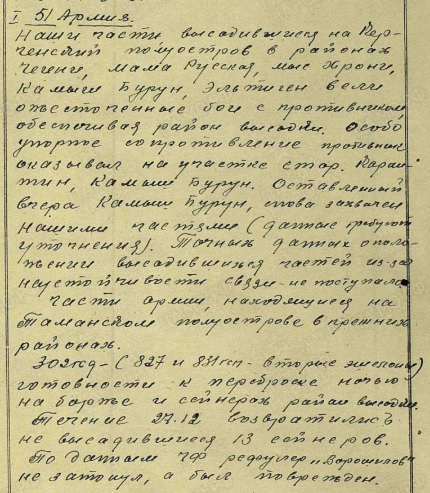 I 51 Армия.
Наши части высадившиеся на Кер-
ченский полуостров в районах
Чегени, Мама Русская, мыс Хрони,
Камыш Бурун, Эльтиген вели
ожесточенные бои с противником,
обеспечивая район высадки. Особо
упорное сопротивление противник
оказывал на участке стар. Каран-
тин, Камыш Бурун. Оставленный
вчера Камыш Бурун, снова захвачен
нашими частями (данные требуют
уточнения). Точных данных о поло-
жении высадившихся частей из-за
неустойчивости связи - не поступало
Части армии, находящиеся на
Таманском полуострове в прежних
районах.
302 сд - (827 и 831 сп - вторые эшелоны)
готовности к переброске ночью
на барже и сейнерах район высадки.
Течение 27.12 возвратились
не высадившиеся 13 сейнеров.
По данным ЧФ рефулер "Ворошилов"
не затонул, а был поврежден.